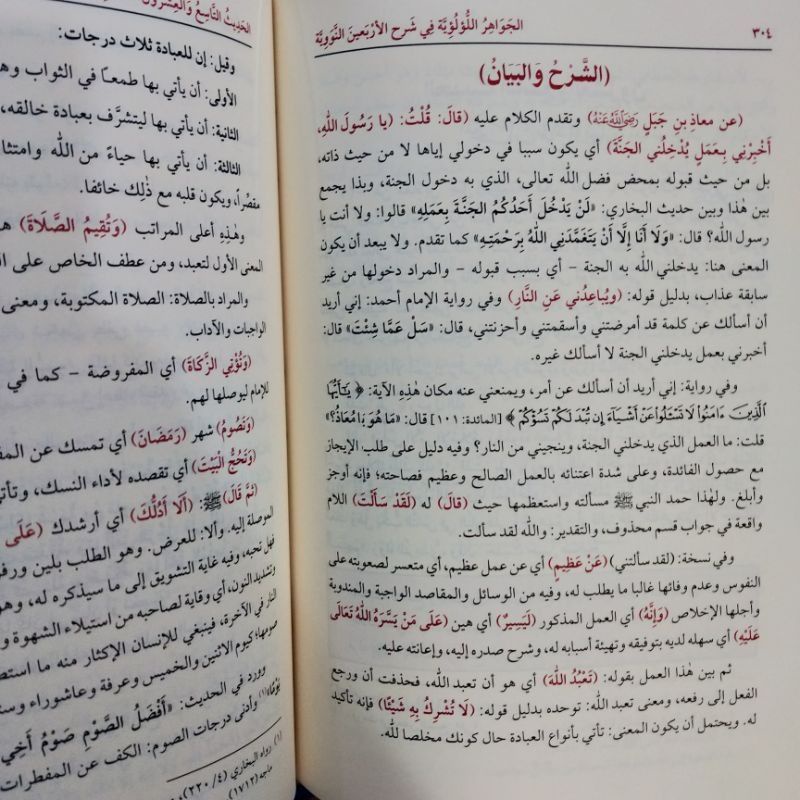 ٣٠٤ الجَوَاهِرُ اللُّؤْلُؤِيَّة فِي شَرحِ الأَرْبَعِينَ النَّوَوِيَّة
(الشَّرْحُ وَالبَيَانُ)
(عن معاذِ بنِ جَبَلٍ رَضِيَ اللهُ عَنْهُ) وتقدم الكلام عليه (قالَ: قُلْتُ: (يا رَسُولَ اللهِ،
أَخْبِرْنِي بِعَمَلٍ يُدْخِلُنِي الجَنَّةَ) أي يكون سببا في دخولي إياها لا من حيث ذاته،
بل من حيث قبوله بمحض فضل الله تعالى، الذي به دخول الجنة، وبذا يجمع
بين هٰذا وبين حديث البخاري: «لَنْ يَدْخُلَ أَحَدُكُمُ الجَنَّةَ بِعَمَلِهِ» قالوا: ولا أنت يا
رسول الله؟ قال: «وَلَا أَنَا إِلَّا أَنْ يَتَغَمَّدَنِي اللهُ بِرَحْمَتِهِ» كما تقدم. ولا يبعد أن يكون
المعنى هنا: يدخلني الله به الجنة - أي بسبب قبوله - والمراد دخولها من غير
سابقة عذاب، بدليل قوله: (ويُباعِدُنِي عَنِ النَّارِ) وفي رواية الإمام أحمد: إني أريد
أن أسألك عن كلمة قد أمرضتني وأسقمتني وأحزنتني، قال: «سَلْ عَمَّا شِئْتَ» قال:
أخبرني بعمل يدخلني الجنة لا أسألك غيره.
وفي رواية: إني أريد أن أسألك عن أمر، ويمنعني عنه مكان هٰذِهِ الآية: ﴿ يَٰٓأَيُّهَا
ٱلَّذِينَ ءَامَنُوا۟ لَا تَسْـَٔلُوا۟ عَنْ أَشْيَآءَ إِن تُبْدَ لَكُمْ تَسُؤْكُمْ ﴾ [المائدة: ١٠١] قال: «مَا هُوَ يَا مُعاذُ؟»
قلت: ما العمل الذي يدخلني الجنة، وينجيني من النار؟ وفيه دليل على طلب الإيجاز
مع حصول الفائدة، وعلى شدة اعتنائه بالعمل الصالح وعظيم فصاحته؛ فإنه أوجز
وأبلغ. ولهٰذا حمد النبي ﷺ مسألته واستعظمها حيث (قالَ) له (لَقَدْ سَأَلْتَ) اللام
واقعة في جواب قسم محذوف، والتقدير: والله لقد سألت.
وفي نسخة: (لقد سألتني) (عَنْ عَظِيمٍ) أي عن عمل عظيم، أي متعسر لصعوبته على
النفوس وعدم وفائها غالبا ما يطلب له، وفيه من الوسائل والمقاصد الواجبة والمندوبة
وأجلها الإخلاص (وَإِنَّهُ) أي العمل المذكور (لَيَسِيرٌ) أي هين (عَلَى مَنْ يَسَّرَهُ اللهُ تَعَالَى
عَلَيْهِ) أي سهله لديه بتوفيقه وتهيئة أسبابه له، وشرح صدره إليه، وإعانته عليه.
ثم بين هٰذا العمل بقوله: (تَعْبُدُ اللهَ) أي هو أن تعبد الله، فحذفت أن ورجع
الفعل إلى رفعه، ومعنى تعبد الله: توحده بدليل قوله: (لَا تُشْرِكُ بِهِ شَيْئًا) فإنه تأكيد
له. ويحتمل أن يكون المعنى: تأتي بأنواع العبادة حال كونك مخلصا لله.
الحَدِيثُ التَّاسِعُ وَالعِشْرُونَ
وقيل: إن للعبادة ثلاث درجات:
الأولى: أن يأتي بها طمعاً في الثواب
الثانية: أن يأتي بها ليتشرَّف بعبادة خالقه،
الثالثة: أن يأتي بها حياءً من الله
مقصِّراً، ويكون قلبه مع ذٰلِكَ خائفا.
وهٰذِهِ أعلى المراتب (وَتُقِيمُ الصَّلَاةَ)
المعنى الأول لتعبد، ومن عطف الخاص على
والمراد بالصلاة: الصلاة المكتوبة، ومعنى
الواجبات والآداب.
(وَتُؤْتِي الزَّكَاةَ) أي المفروضة - كما في
للإمام ليوصلها لهم.
(وَتَصُومُ) شهر (رَمَضَانَ) أي تمسك عن
(وَتَحُجُّ البَيْتَ) أي تقصده لأداء النسك،
(ثُمَّ قَالَ) ﷺ: (أَلَا أَدُلُّكَ) أي أرشدك (عَلَى
الموصلة إليه. وألا: للعرض. وهو الطلب بلين
فهل تحبه، وفيه غاية التشويق إلى ما سيذكره له،
وتشديد النون، أي وقاية لصاحبه من استيلاء الشهوة
النار في الآخرة، فينبغي للإنسان الإكثار منه ما
صومها؛ كيوم الاثنين والخميس وعرفة وعاشوراء
وورد في الحديث: «أَفْضَلُ الصَّوْمِ صَوْمُ أَخِي
يَوْمًا»(١) وأدنى درجات الصوم: الكف عن المفطرات
(١) رواه البخاري (٤/ ٢٢٠)،
ماجه (١٧١٢)